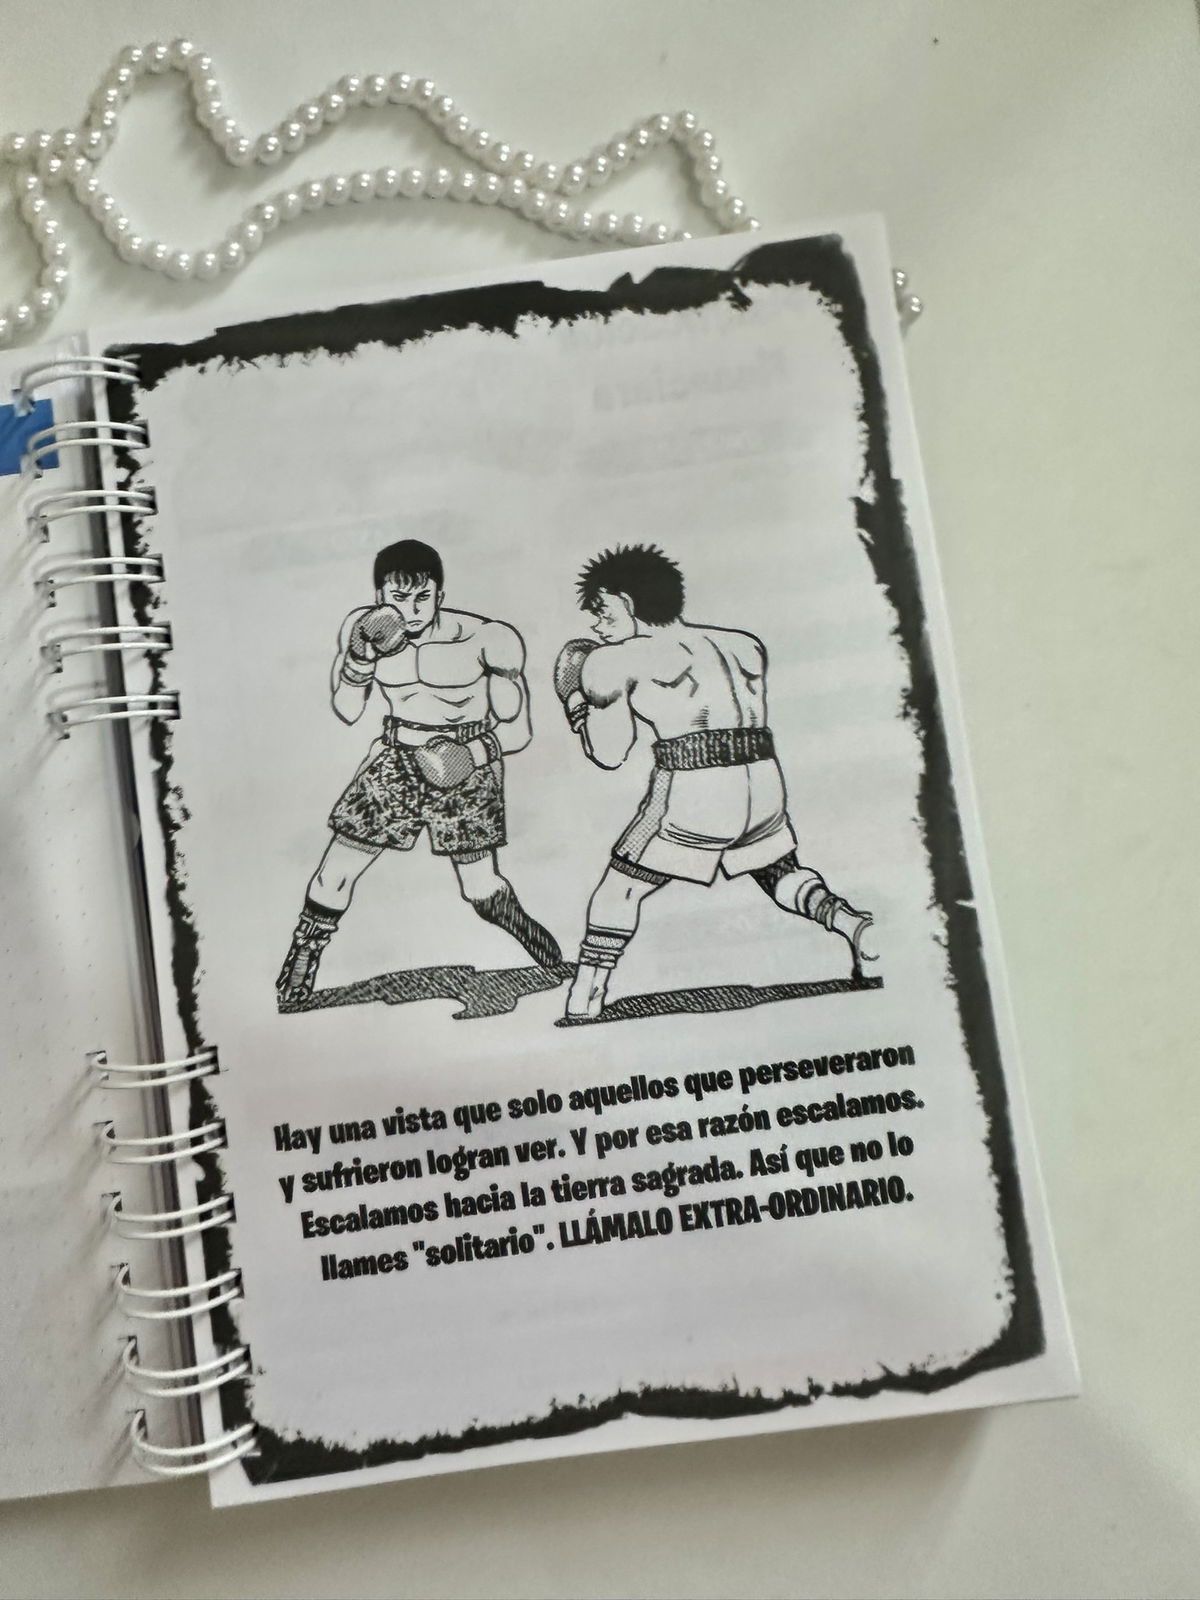 Hay una vista que solo aquellos que perseveraron
y sufrieron logran ver. Y por esa razón escalamos.
Escalamos hacia la tierra sagrada. Así que no lo
llames "solitario". LLÁMALO EXTRA-ORDINARIO.